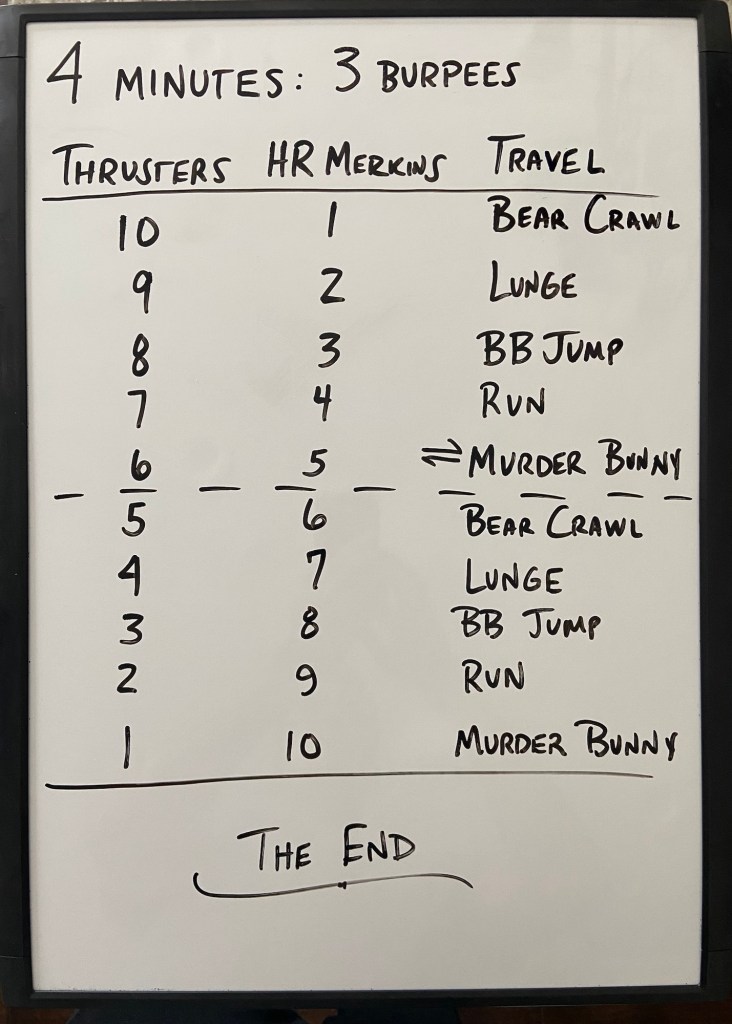 4 MINUTES: 3 BURPEES
THRUSTERS HR MERKINS TRAVEL
10 1 BEAR CRAWL
9 2 LUNGE
8 3 BB JUMP
7 4 RUN
6 5 ⇌ MURDER BUNNY
5 6 BEAR CRAWL
4 7 LUNGE
3 8 BB JUMP
2 9 RUN
1 10 MURDER BUNNY
THE END